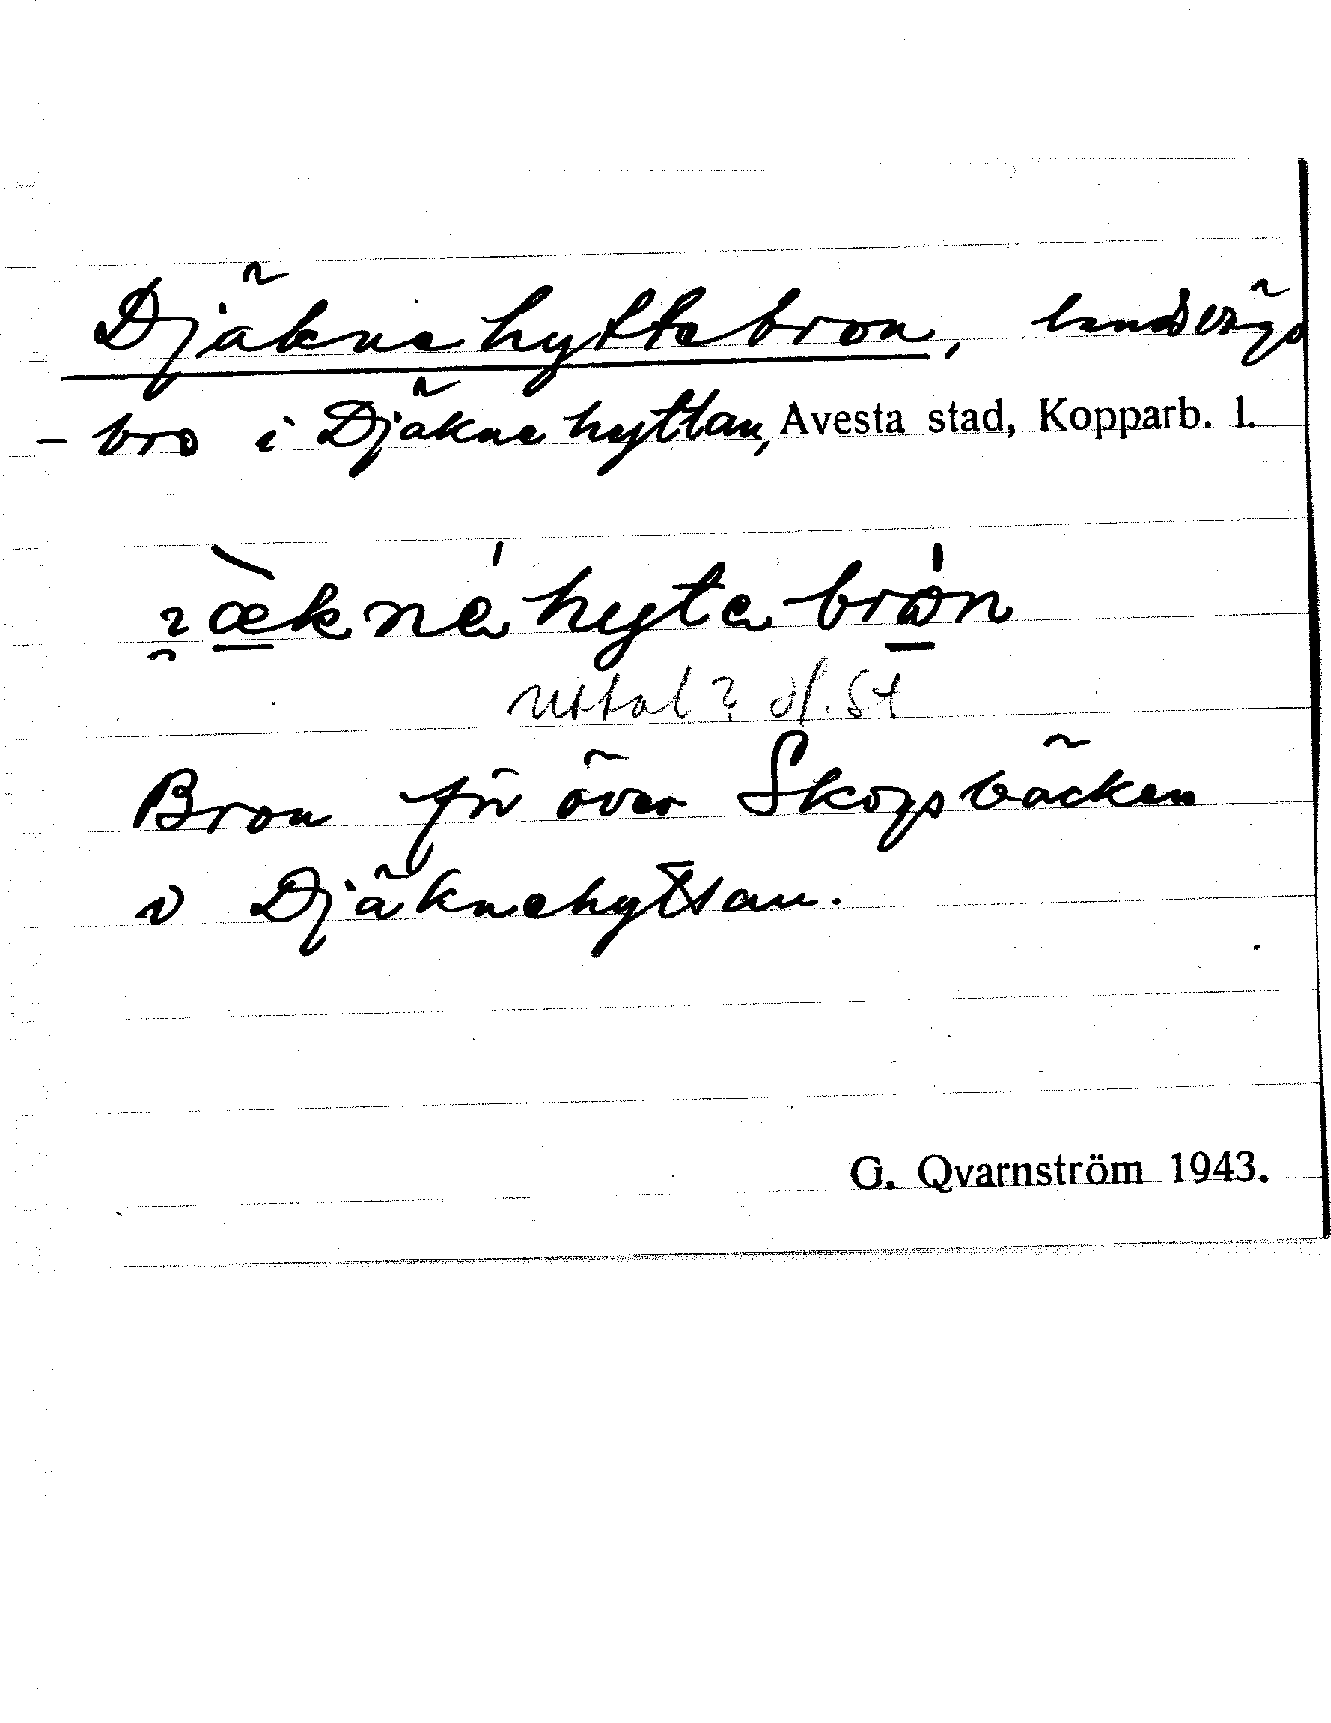 Djäknehyttebron, landsvägs
- bro i Djäknehyttan, Avesta stad, Kopparb. l.
Uttal?
Bron för över Skogsbäcken
v Djäknehyttan.
G. Qvarnström 1943.